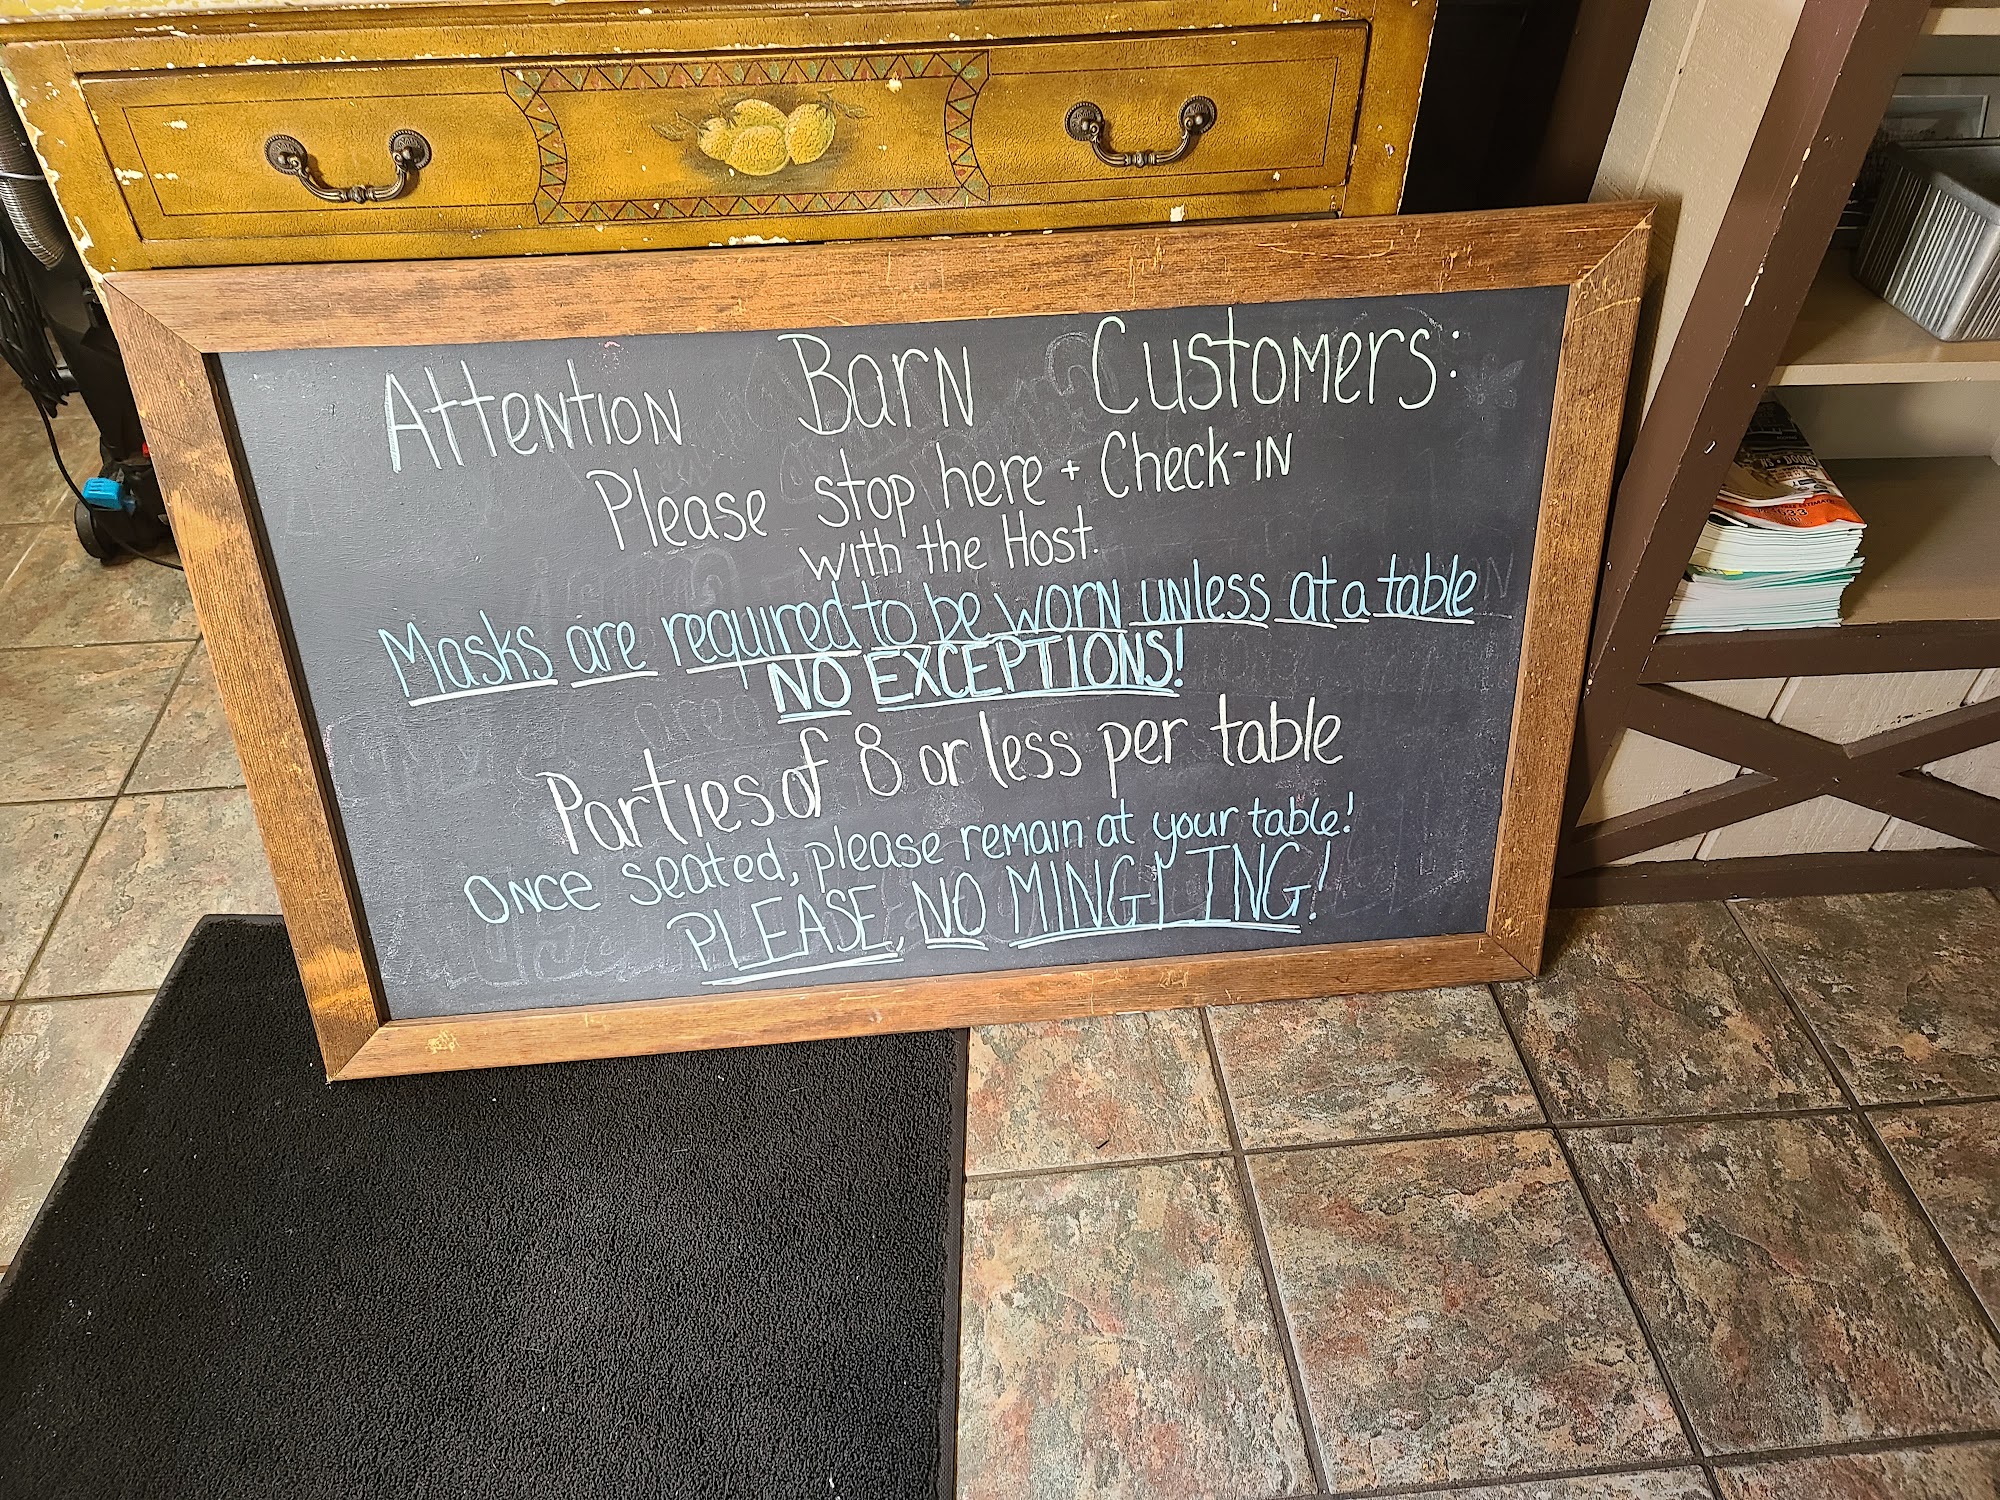 Attention Barn Customers:
Please stop here + Check-in
with the Host.
Masks are required to be worn unless at a table
NO EXCEPTIONS!
Parties of 8 or less per table
Once seated, please remain at your table!
PLEASE, NO MINGLING!